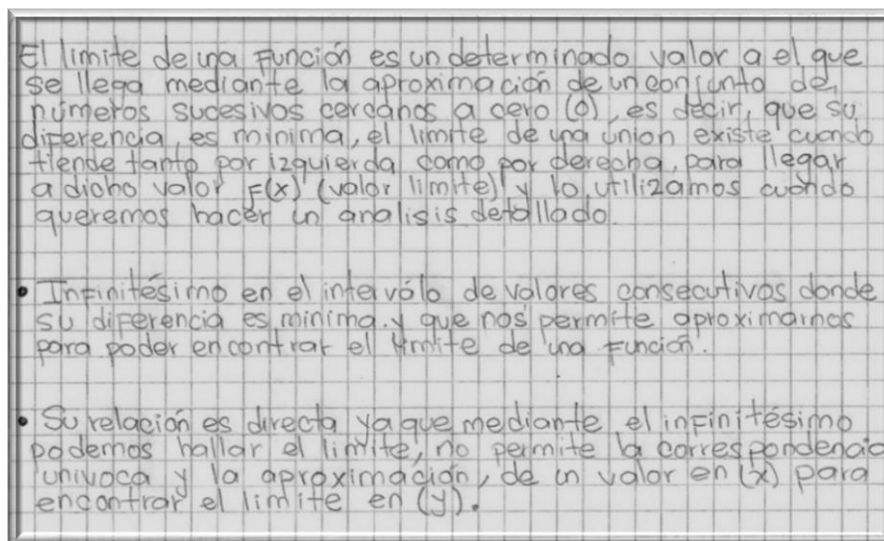 El limite de una Función es un determinado valor a el que
se llega mediante la aproximación de un conjunto de
números sucesivos cercanos a cero (0), es decir, que su
diferencia es minima, el limite de una union existe cuando
tiende tanto por izquierda como por derecha, para llegar
a dicho valor F(x) (valor limite) y lo utilizamos cuando
queremos hacer un analisis detallado.
• Infinitésimo en el intervólo de valores consecutivos donde
su diferencia es minima. y que nos permite aproximarnos
para poder encontrar el limite de una Función.
• Su relación es directa ya que mediante el infinitésimo
podemos hallar el limite, no permite la correspondencia
univoca y la aproximación, de un valor en (x) para
encontrar el limite en (y).